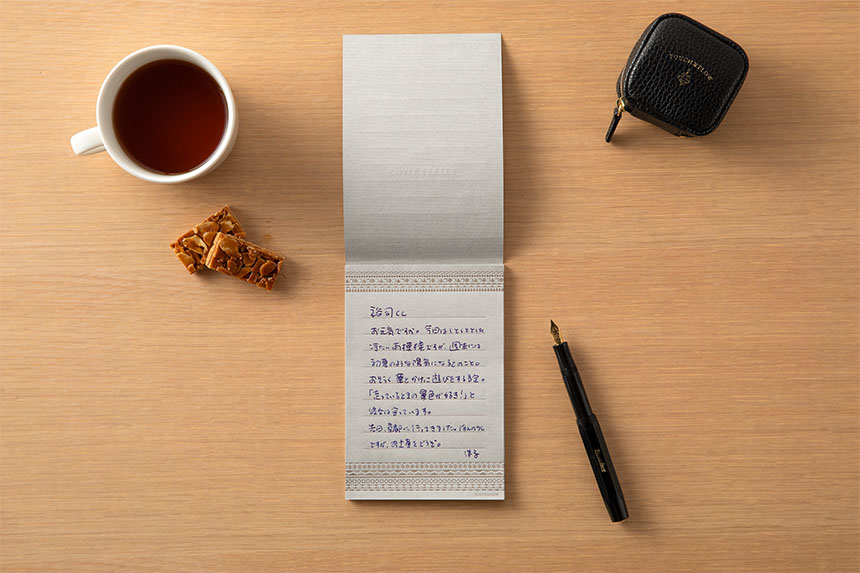 裕司くん
お元気ですか。今日はしとしとした
冷たい雨模様ですが、週末には
初夏のような陽気になるとのこと。
おそらく
遊びをする予定。
「走っているときの景色が好き!」と
言っています。
先日、京都に行ってきました。ほんの少し
ですが、お土産をどうぞ。
洋子